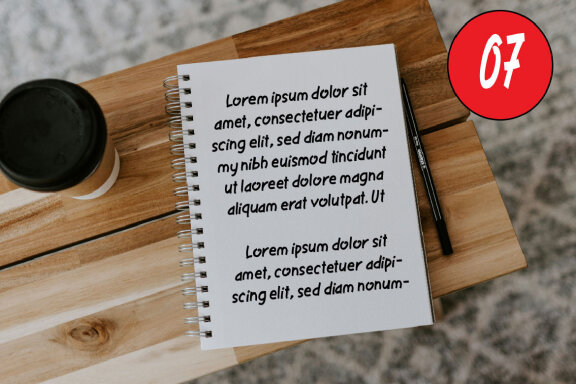 07
Lorem ipsum dolor sit
amet, consectetuer adipi-
scing elit, sed diam nonum-
my nibh euismod tincidunt
ut laoreet dolore magna
aliquam erat volutpat. Ut
Lorem ipsum dolor sit
amet, consectetuer adipi-
scing elit, sed diam nonum-